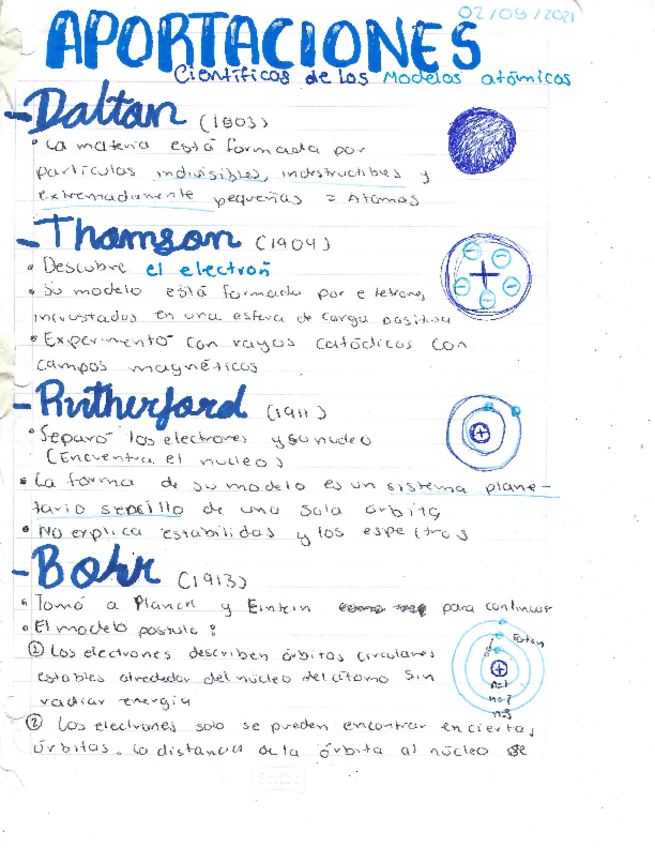 02/09/2021
APORTACIONES
Científicas de los Modelos atómicos
- Daltan (1803)
• La materia está formada por
partículas indivisibles, indestructibles y
extremadamente pequeñas = Atomos
- Thomson (1904)
• Descubre el electrón
• Su modelo está formado por eletrones
incrustados en una esfera de carga positiva
• Experimentó con rayos catódicos con
campos magnéticos
- Rutherford (1911)
• Separó los electrones y su nucleo
(Encuentra el nucleo)
• La forma de su modelo es un sistema plane-
tario sencillo de una sola órbita
• No explica estabilidas y los espectros
- Bohr (1913)
• Tomó a Planck y Eintein para continuar
• El modelo postula:
① Los electrones describen órbitas circulares
estables alrededor del núcleo del átomo sin
radiar energía
Foton
n=1
n=2
n=3
② Los electrones solo se pueden encontrar en ciertas
órbitas. La distancia de la órbita al núcleo se